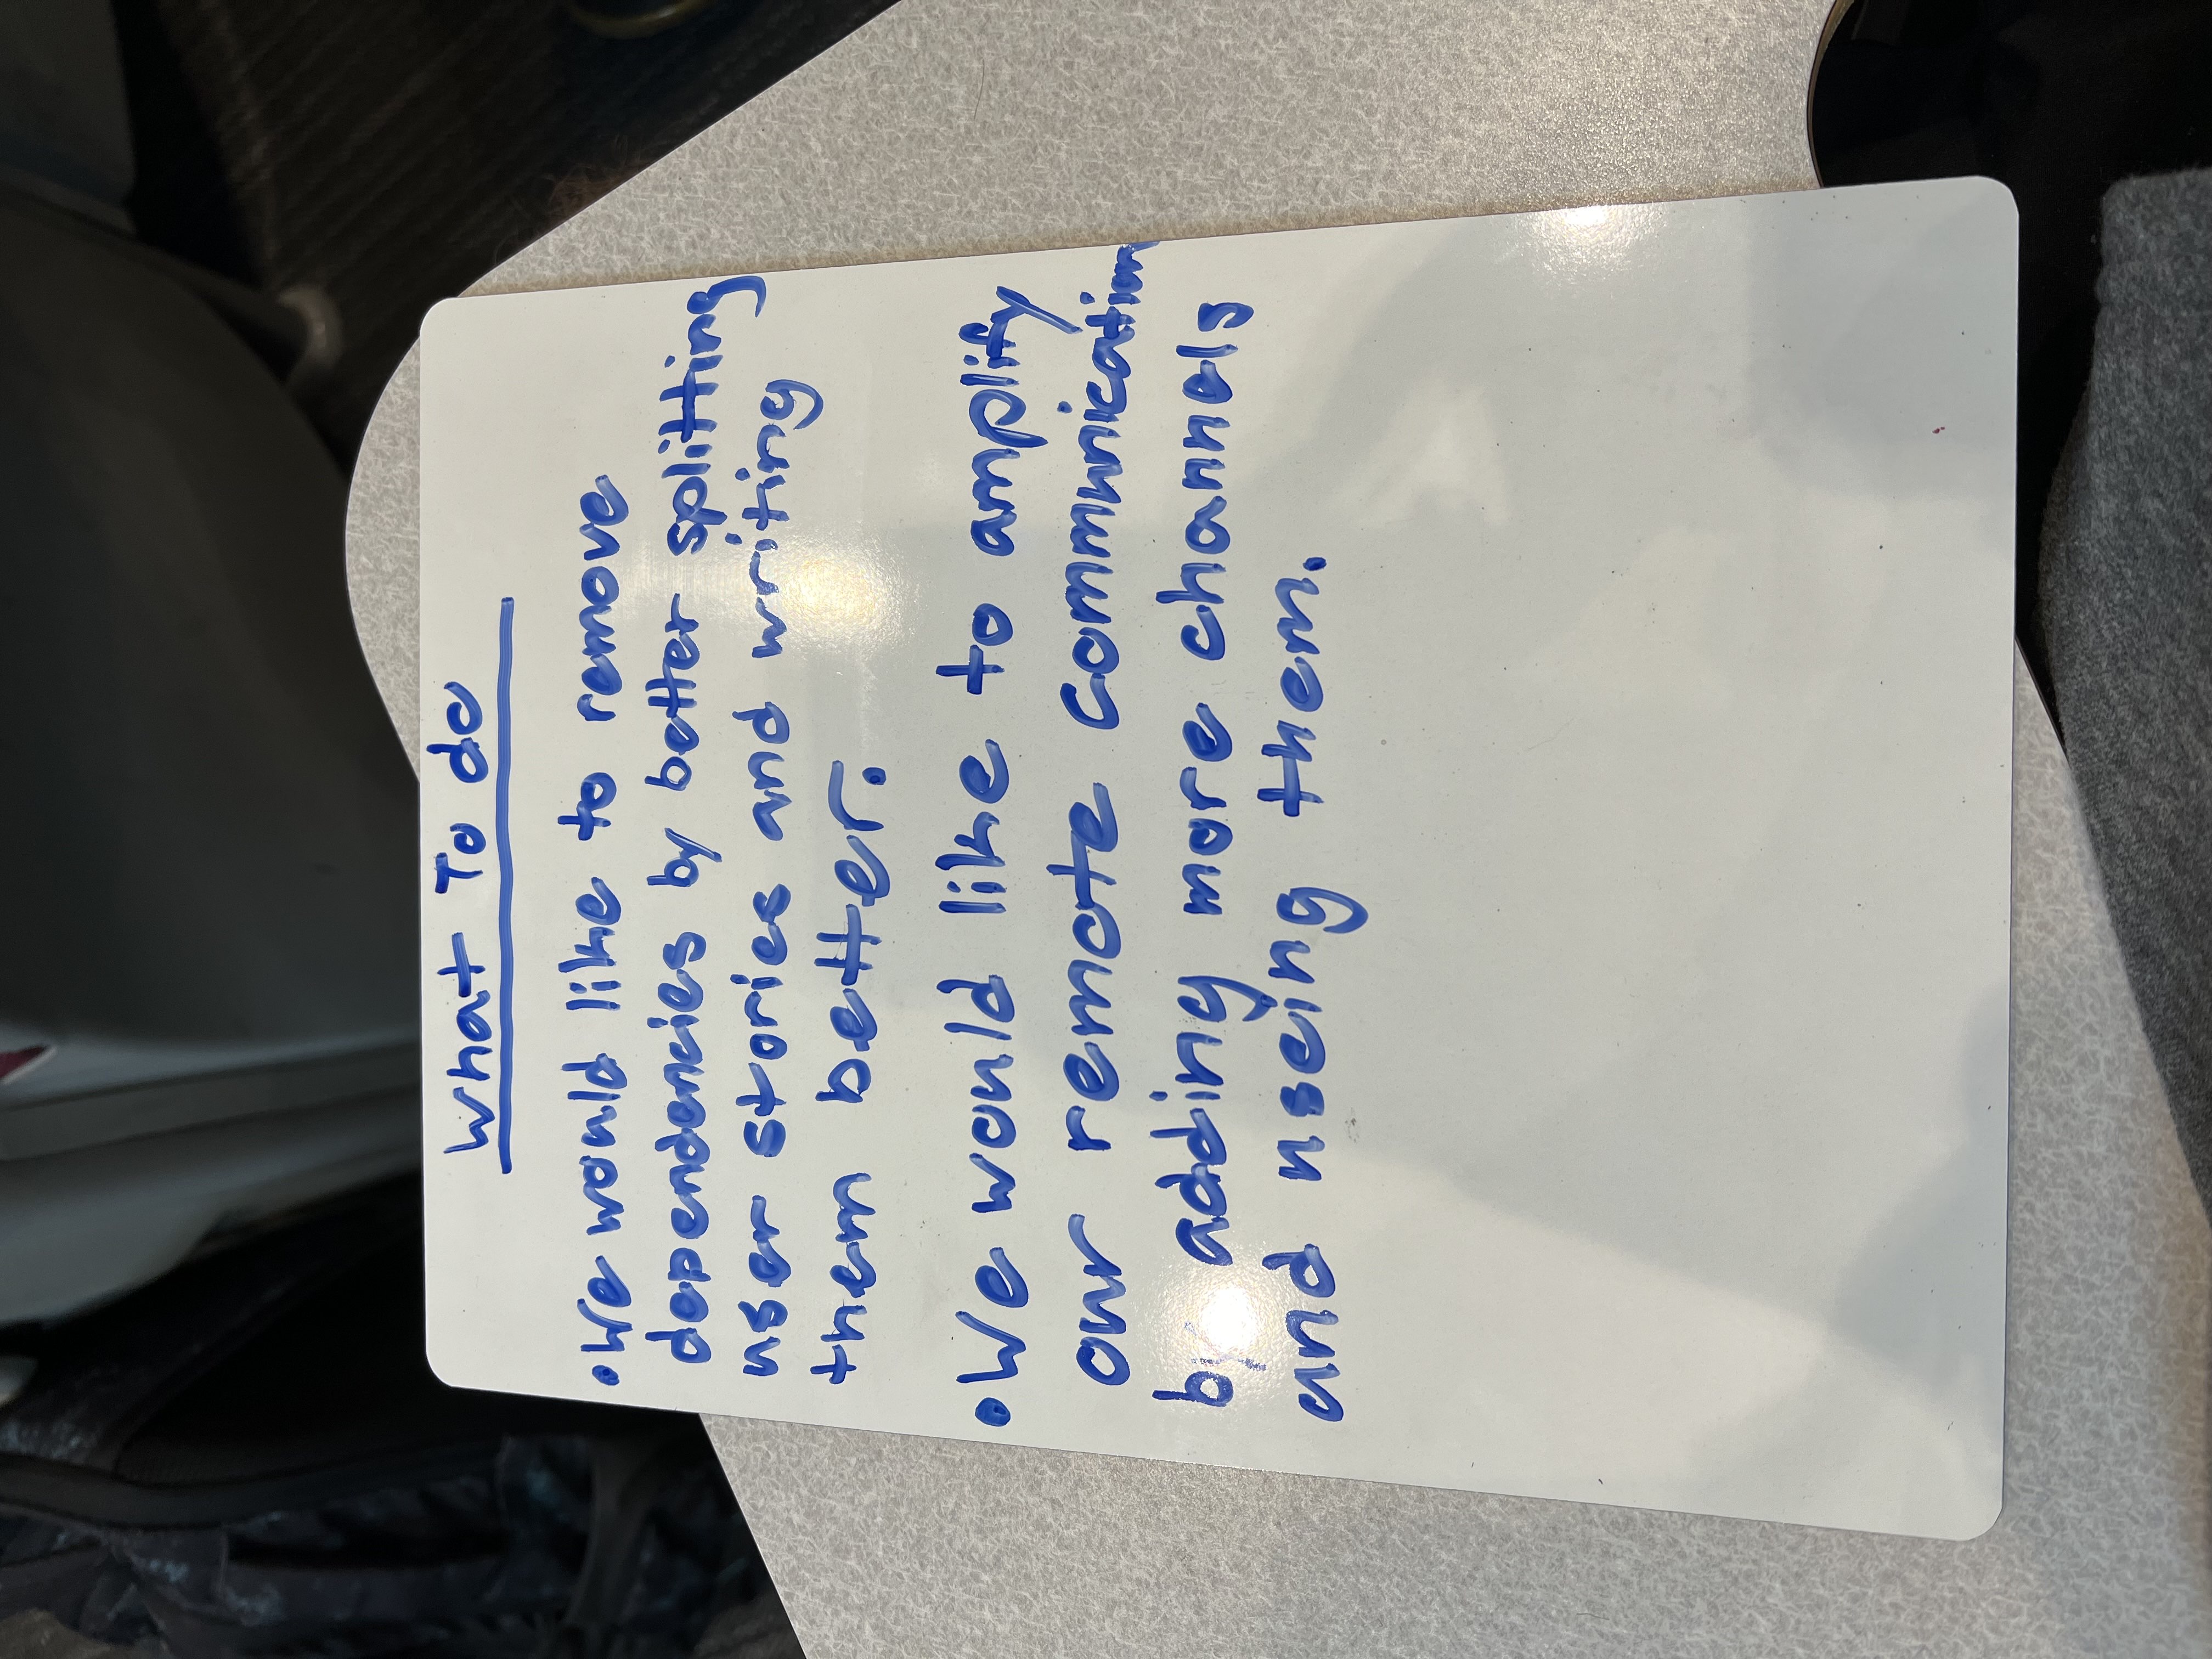 What To do
•We would like to remove
dependencies by better splitting
user stories and writing
them better.
•We would like to amplify
our remote communication
by adding more channels
and useing them.